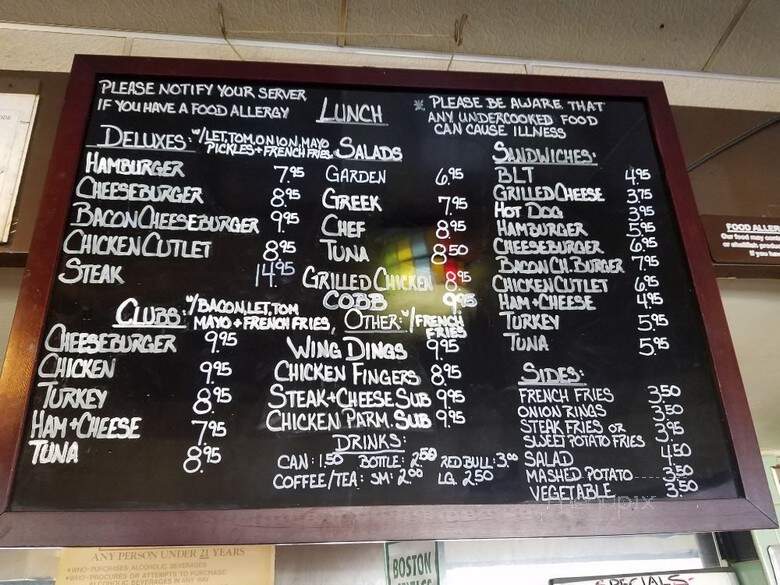 PLEASE NOTIFY YOUR SERVER
IF YOU HAVE A FOOD ALLERGY
LUNCH
※ PLEASE BE AWARE THAT
ANY UNDERCOOKED FOOD
CAN CAUSE ILLNESS
DELUXES: W/LET,TOM,ONION,MAYO
PICKLES + FRENCH FRIES
HAMBURGER 7.95
CHEESEBURGER 8.95
BACON CHEESEBURGER 9.95
CHICKEN CUTLET 8.95
STEAK 14.95
CLUBS: W/BACON,LET,TOM
MAYO + FRENCH FRIES,
CHEESEBURGER 9.95
CHICKEN 9.95
TURKEY 8.95
HAM + CHEESE 7.95
TUNA 8.95
SALADS
GARDEN 6.95
GREEK 7.95
CHEF 8.95
TUNA 8.50
GRILLED CHICKEN 8.95
COBB 9.95
OTHER: W/FRENCH
FRIES
WING DINGS 9.95
CHICKEN FINGERS 8.95
STEAK + CHEESE SUB 9.95
CHICKEN PARM. SUB 9.95
DRINKS:
CAN: 1.50 BOTTLE: 2.50 RED BULL: 3.00
COFFEE/TEA: SM: 2.00 LG. 2.50
SANDWICHES:
BLT 4.95
GRILLED CHEESE 3.75
HOT DOG 3.95
HAMBURGER 5.95
CHEESEBURGER 6.95
BACON CH. BURGER 7.95
CHICKEN CUTLET 6.95
HAM + CHEESE 4.95
TURKEY 5.95
TUNA 5.95
SIDES:
FRENCH FRIES 3.50
ONION RINGS 3.50
STEAK FRIES OR
SWEET POTATO FRIES 3.95
SALAD 4.50
MASHED POTATO 3.50
VEGETABLE 3.50
FOOD ALLER
Our food may cont
or shellfish prod
If you hav
ANY PERSON UNDER 21 YEARS
• WHO PURCHASES ALCOHOLIC BEVERAGES
• WHO PROCURES OR ATTEMPTS TO PURCHASE
ALCOHOLIC BEVERAGES IN ANY WAY
BOSTON
SPECIALS